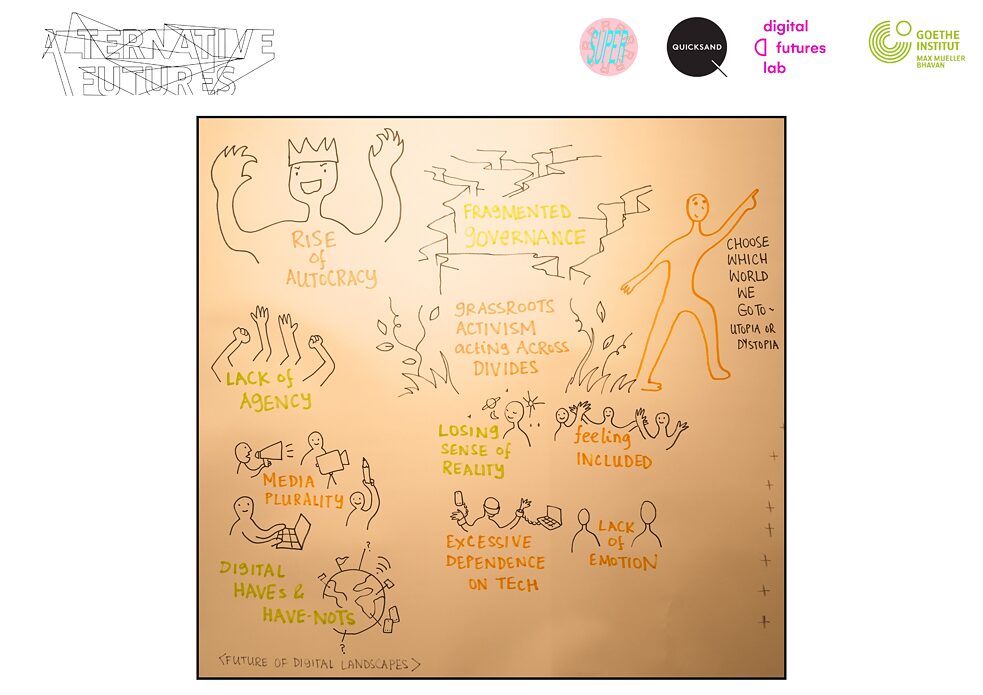 ALTERNATIVE
FUTURES
SUPER
QUICKSAND
digital
futures
lab
GOETHE
INSTITUT
MAX MUELLER
BHAVAN
RISE
of
AUTOCRACY
FRAGMENTED
GOVERNANCE
CHOOSE
WHICH
WORLD
WE
GO TO ~
UTOPIA OR
DYSTOPIA
GRASSROOTS
ACTIVISM
acting ACROSS
DIVIDES
LACK of
AGENCY
LOSING
SENSE of
REALITY
feeling
INCLUDED
MEDIA
PLURALITY
EXCESSIVE
DEPENDENCE
ON TECH
LACK
of
EMOTION
DIGITAL
HAVEs &
HAVE-NOTS
?
?
<FUTURE OF DIGITAL LANDSCAPES>